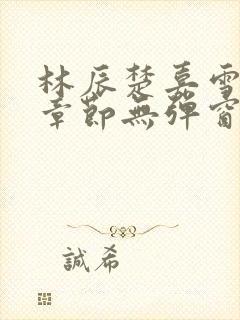 林辰楚嘉雪
章節無彈窗
誠希